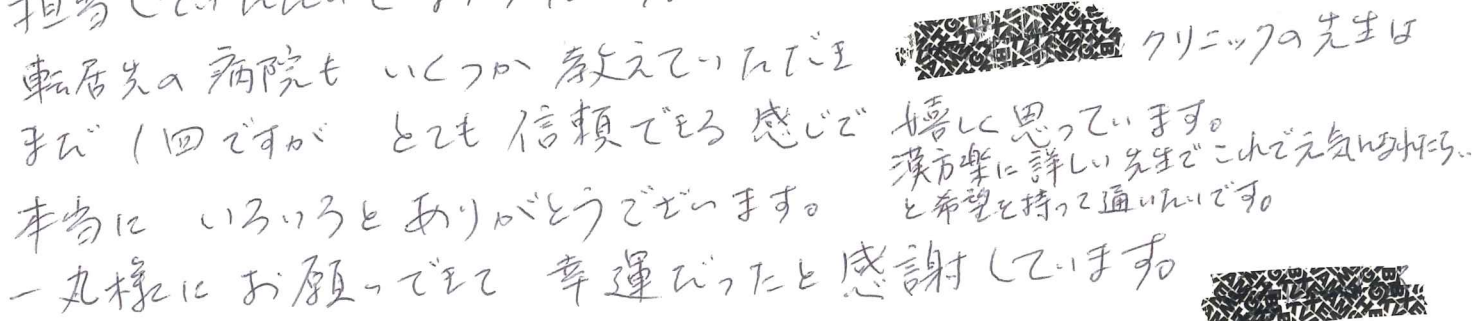 転居先の病院も いくつか教えていただき クリニックの先生は
まだ1回ですが とても信頼できる感じで 嬉しく思っています。
漢方薬に詳しい先生でこれで元気になれたら..
と希望を持って通いたいです。
本当に いろいろとありがとうございます。
一丸様にお願いできて 幸運だったと感謝しています。